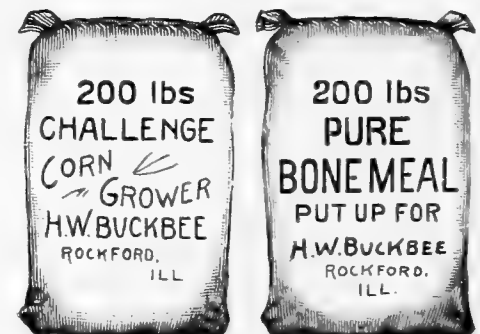 200 lbs
CHALLENGE
CORN
GROWER
H.W. BUCKBEE
ROCKFORD,
ILL
200 lbs
PURE
BONEMEAL
PUT UP FOR
H.W. BUCKBEE
ROCKFORD.
ILL.